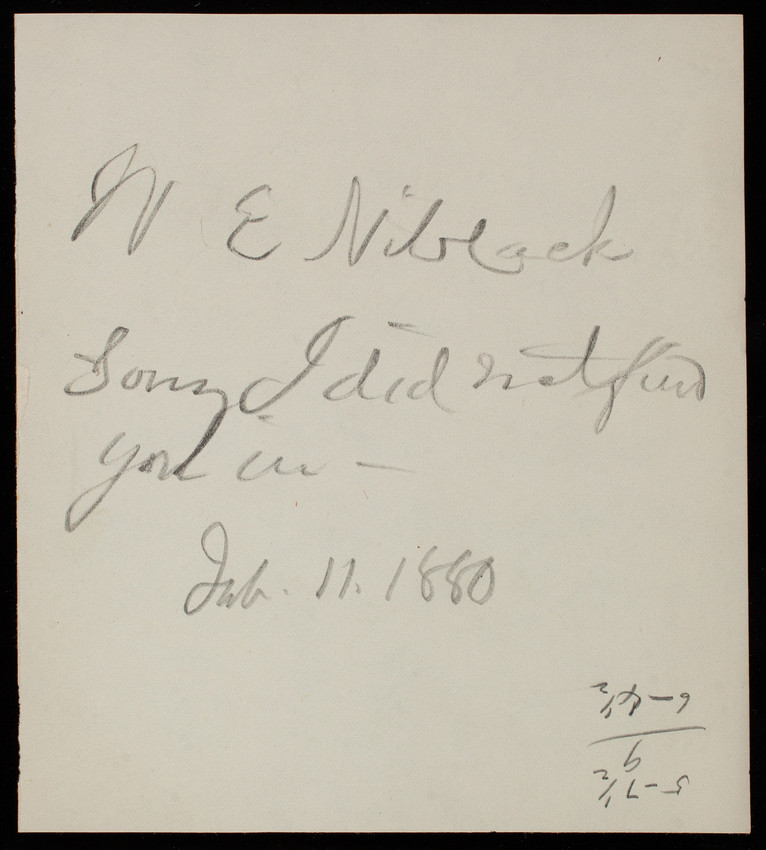 W E Niblack
Sorry I did not find
you in —
Feb. 11. 1880
5-7 1/2
9